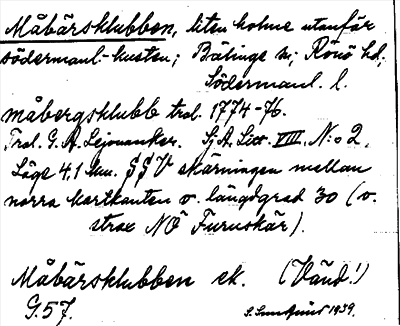 Måbärsklubben, liten holme utanför
södermanl-kusten; Bälinge sn; Rönö hd,
Södermanl. l.
måbergsklubb trol. 1774-76.
Trol. G. A. Lejonanker. Sj. A. Litt. VIII. N:o 2,
Läge 4,1 km. SSV skärningen mellan
norra kartkanten o. längdgrad 30 (o.
strax NÖ Furuskär).
Måbärsklubben ek. (Vänd!)
G.57. 1939.